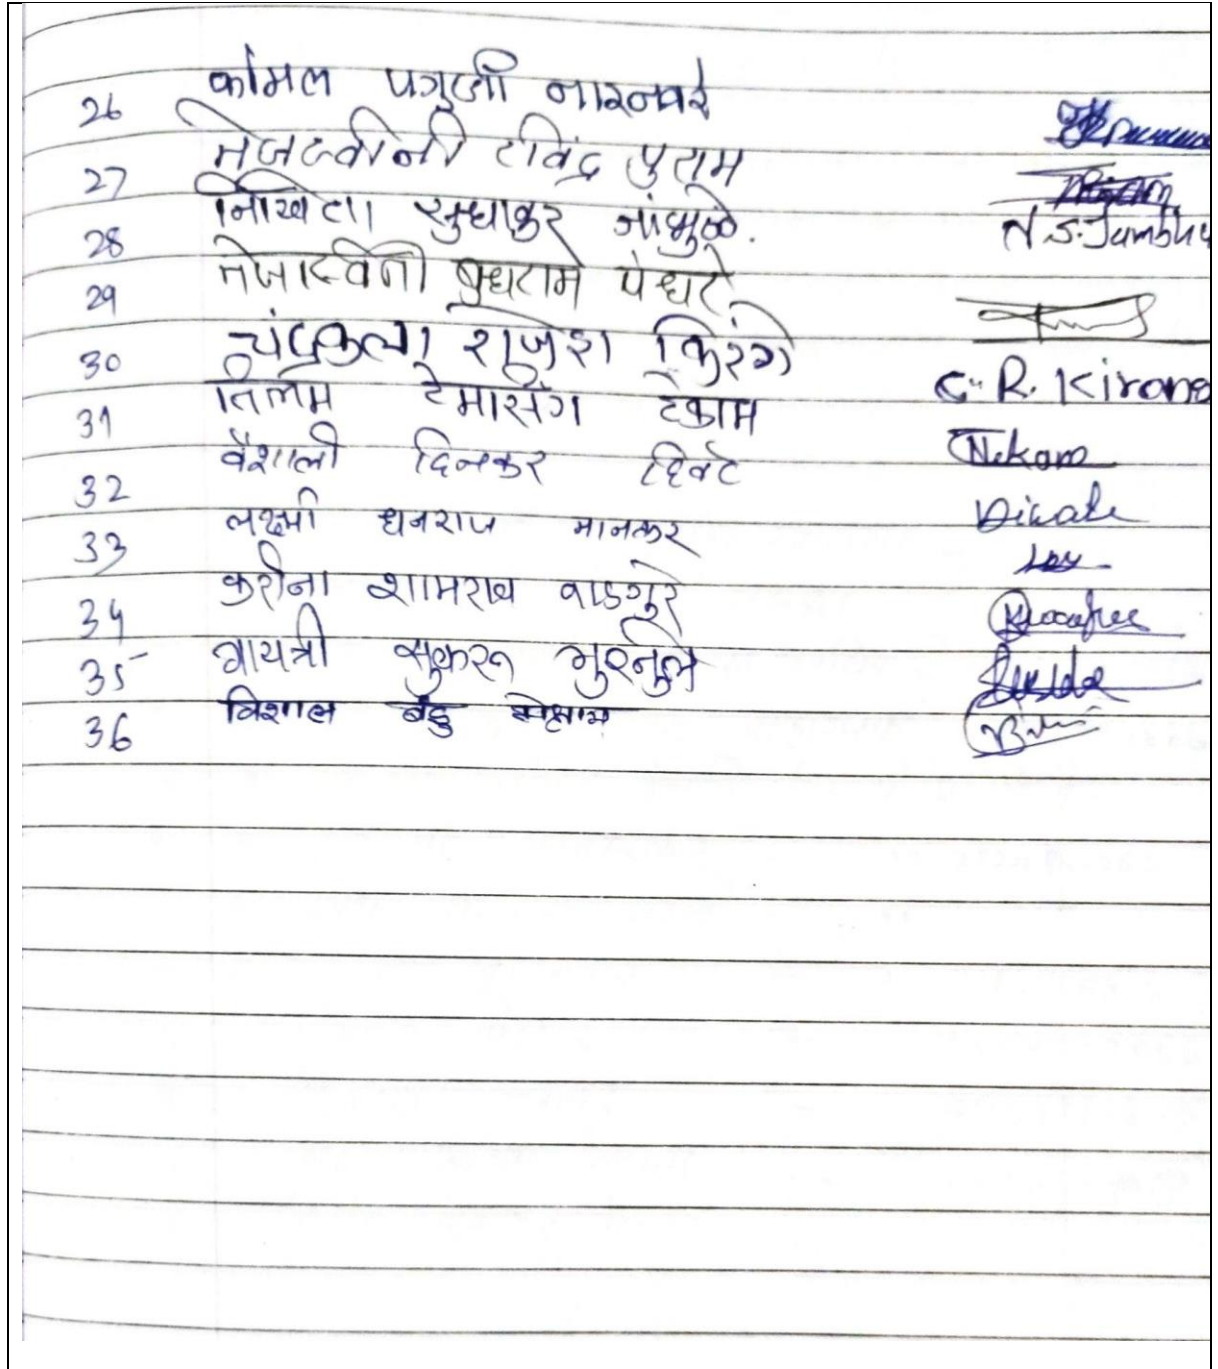 26 कोमल पगुजी नारनवरे
27 तेजस्वीनी रविंद्र पुराम
28 निखिता सुधाकर जांभुळे. N.S. Jambhu
29 तेजस्विनी बुधराम पंधरे
30 चंद्रकला राजेश किरंगे C. R. Kirang
31 तिलम टेमसिंग टेकाम Tekam
32 वैशाली दिनकर दिवटे Diwate
33 लक्ष्मी धनराज मानकर Lax
34 करीना शामराव वाडगुरे
35 गायत्री सुकरू गुरनुले
36 विशाल बंडु मेश्राम